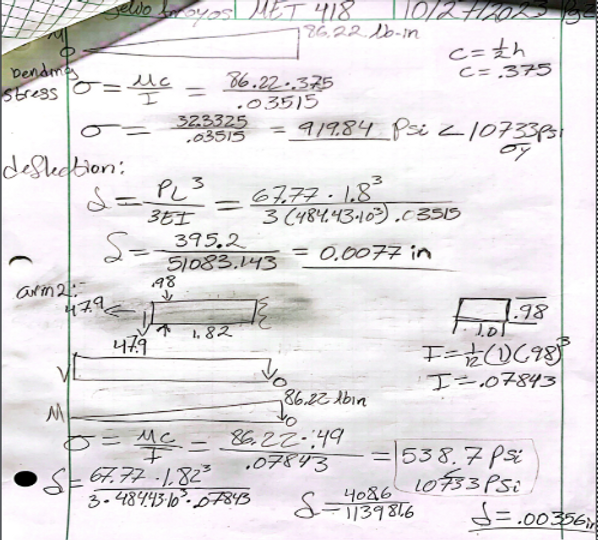 MET 418 10/27/2023
M 86.22 lb-in
0
C = ½h
C = .375
bending stress σ = Mc/I = 86.22·.375/.03515
σ = 32.3325/.03515 = 919.84 Psi < 10733 Psi σy
deflection:
δ = PL³/3EI = 67.77·1.8³/3(484.43·10³).03515
δ = 395.2/51083.143 = 0.0077 in
arm 2:
.98
47.9 1.82
47.9
.98
1.01
I = 1/12(1)(.98)³
I = .07843
V 0
M 86.22 lbin
0
σ = Mc/I = 86.22·.49/.07843 = 538.7 Psi
< 10733 Psi
δ = 67.77·1.82³/3·484.43·10³·.07843
δ = 408.6/113981.6
δ = .00356 in